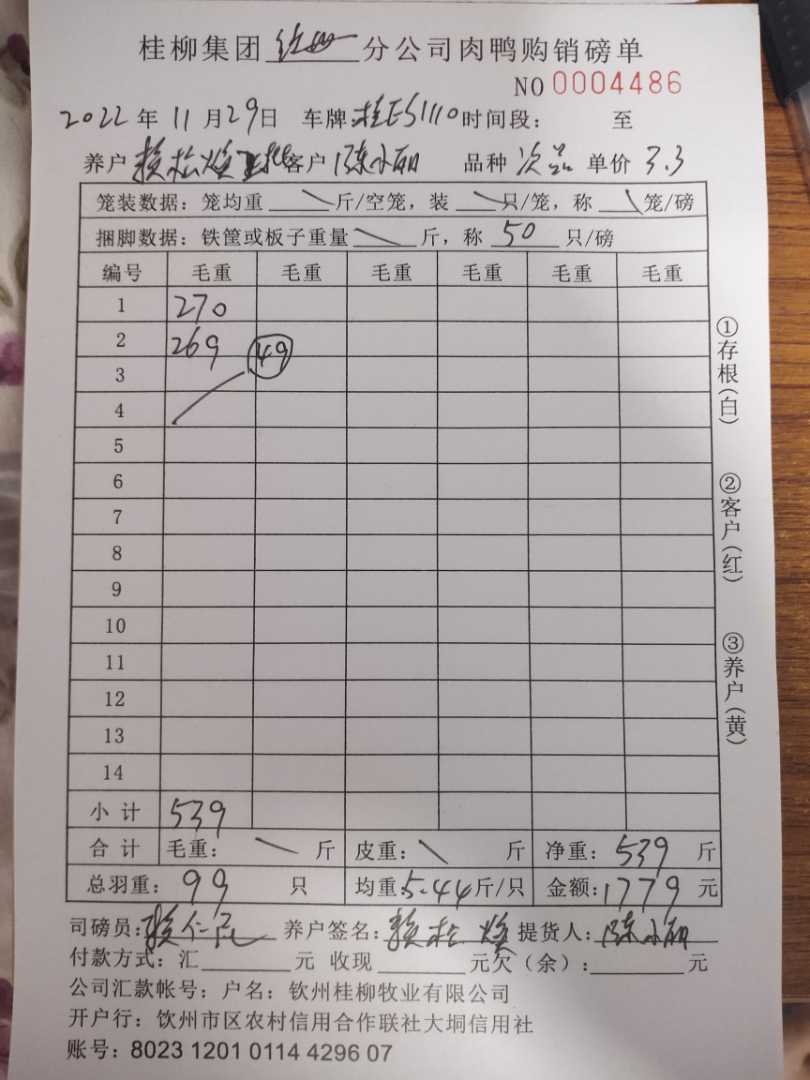 桂柳集团 钦州 分公司肉鸭购销磅单
NO 0004486
2022年 11月29日 车牌:桂E51110 时间段: 至
养户 赖松焕 客户 陈小丽 品种 次品 单价 3.3
笼装数据: 笼均重 \ 斤/空笼, 装 \ 只/笼, 称 \ 笼/磅
捆脚数据: 铁筐或板子重量 \ 斤, 称 50 只/磅
编号 毛重 毛重 毛重 毛重 毛重 毛重
1 270
2 269 49
3
4
5
6
7
8
9
10
11
12
13
14
小计 539
合计 毛重: \ 斤 皮重: \ 斤 净重: 539 斤
总羽重: 99 只 均重:5.44斤/只 金额:1779 元
司磅员:赖仁民 养户签名:赖松焕 提货人:陈小丽
付款方式: 汇 元 收现 元欠(余): 元
公司汇款帐号: 户名: 钦州桂柳牧业有限公司
开户行: 饮州市区农村信用合作联社大垌信用社
账号: 8023 1201 0114 4296 07
①存根(白)
②客户(红)
③养户(黄)